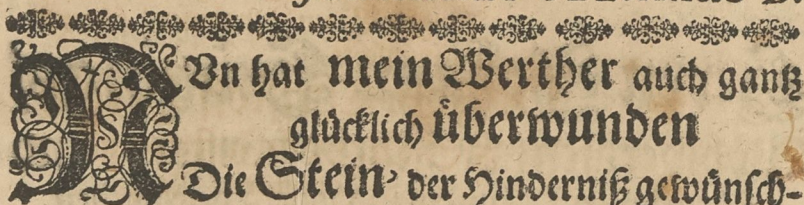 NUn hat mein Werther auch gantz
glücklich überwunden
Die Stein’ der Hinderniß gewünsch-